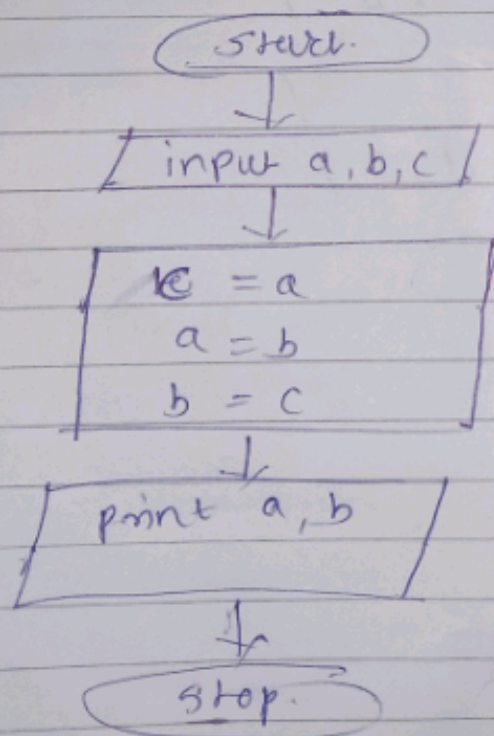 Start.
input a, b, c
c = a
a = b
b = c
print a, b
stop.